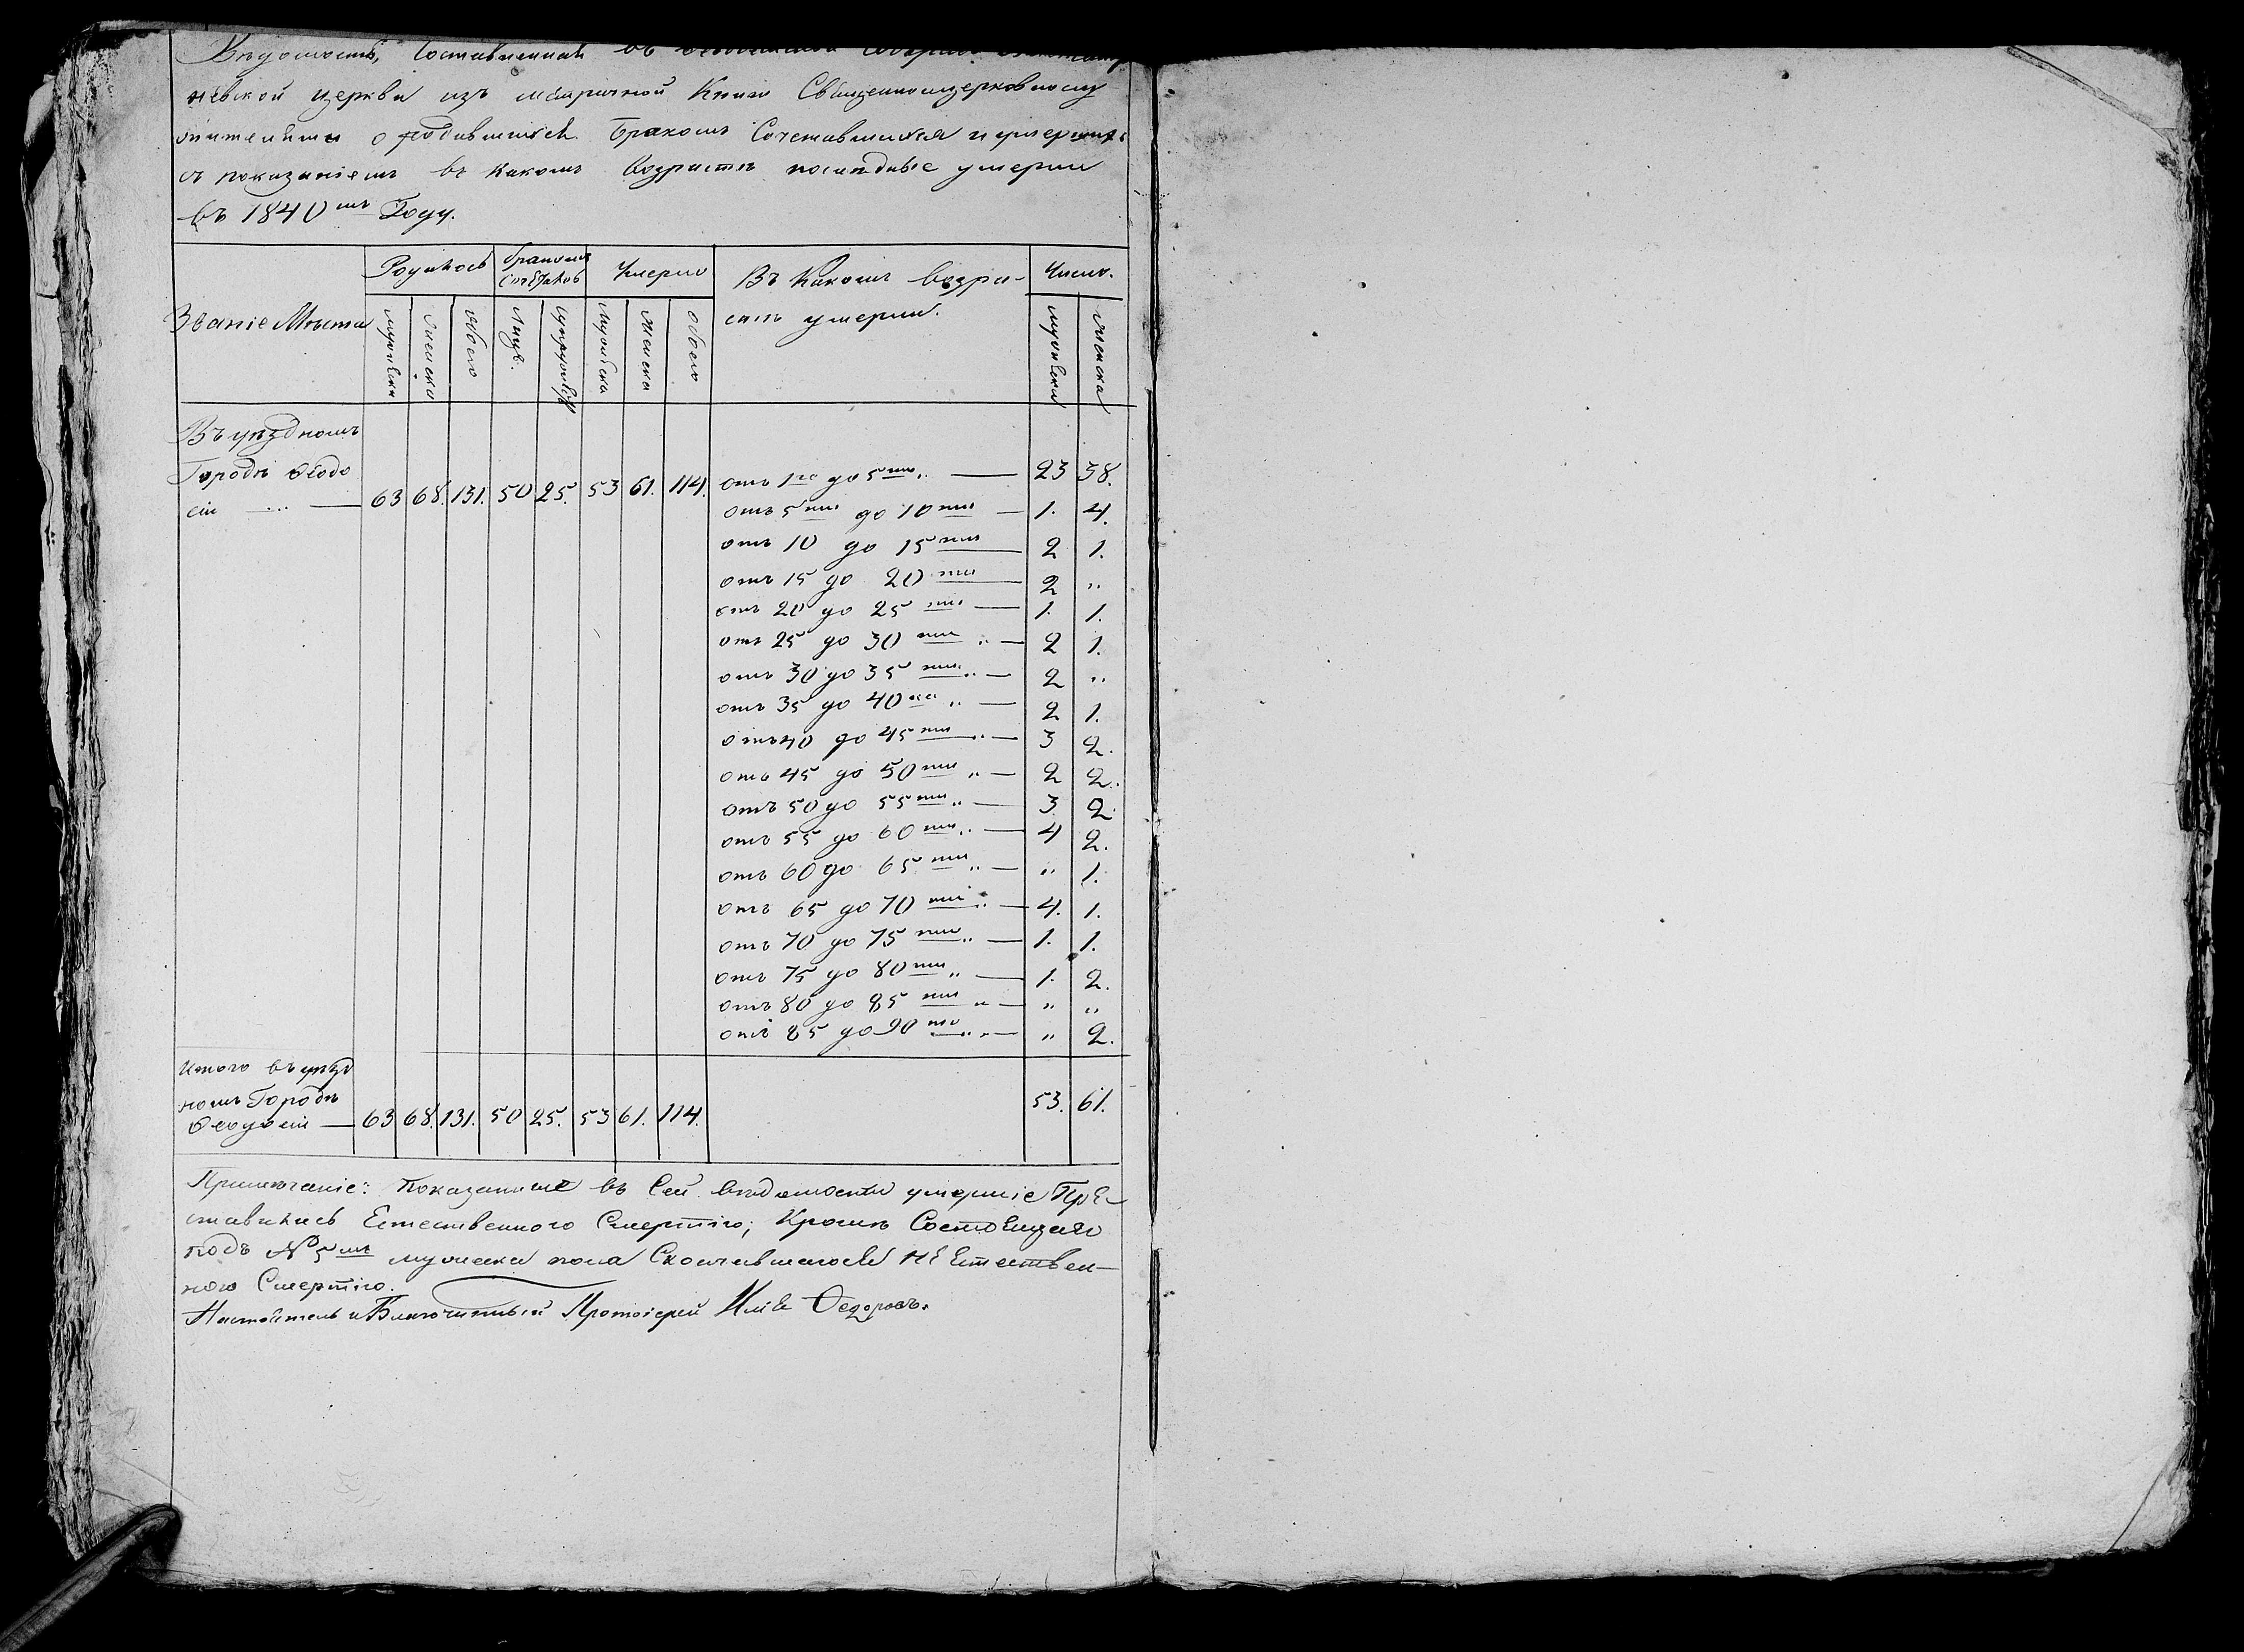 Вѣдомость, составленная въ
невской церкви изъ метричной книги Священноцерковнослу
жителями о родившихся бракомъ сочетавшихся и умершихъ
съ показаніемъ въ какомъ возрастѣ послѣдные умерли
въ 1840мъ Году.
Званіе Мѣста
Родилось
бракомъ
Умерло
Въ какомъ возра-
стѣ умерли.
Число.
мужеска
женска
обоего
Лицъ.
супружествъ
мужеска
женска
обоего
мужеска
женска
Въ уѣздномъ
Городѣ Ѳеодо
сіи — 63 68. 131. 50 25. 53 61. 114.
отъ 1го до 5ти „ — 23 38.
отъ 5ти до 10ти — 1. 4.
отъ 10 до 15ти — 2 1.
отъ 15 до 20ти — 2 „
отъ 20 до 25ти — 1. 1.
отъ 25 до 30ти „ — 2 1.
отъ 30 до 35ти „ — 2 „
отъ 35 до 40ка „ — 2 1.
отъ 40 до 45ти „ — 3 2.
отъ 45 до 50ти „ — 2 2.
отъ 50 до 55ти „ — 3 2.
отъ 55 до 60ти „ — 4 2.
отъ 60 до 65ти „ — „ 1.
отъ 65 до 70ти „ — 4. 1.
отъ 70 до 75ти „ — 1. 1.
отъ 75 до 80ти „ — 1. 2.
отъ 80 до 85ти „ — „ „
отъ 85 до 90то „ — „ 2.
Итого въ уѣзд
номъ Городѣ
Ѳеодосіи — 63 68. 131. 50 25. 53 61. 114. 53. 61.
Примѣчаніе: показанные въ сей вѣдомости умершіе Пре
ставились Естественною Смертію; Кромѣ Состоящаго
подъ № 5мъ мужеска пола Скончавшагося не Естествен-
ною Смертію.
Настоятель и Благочинный Протоіерей Илія Ѳедоровъ.